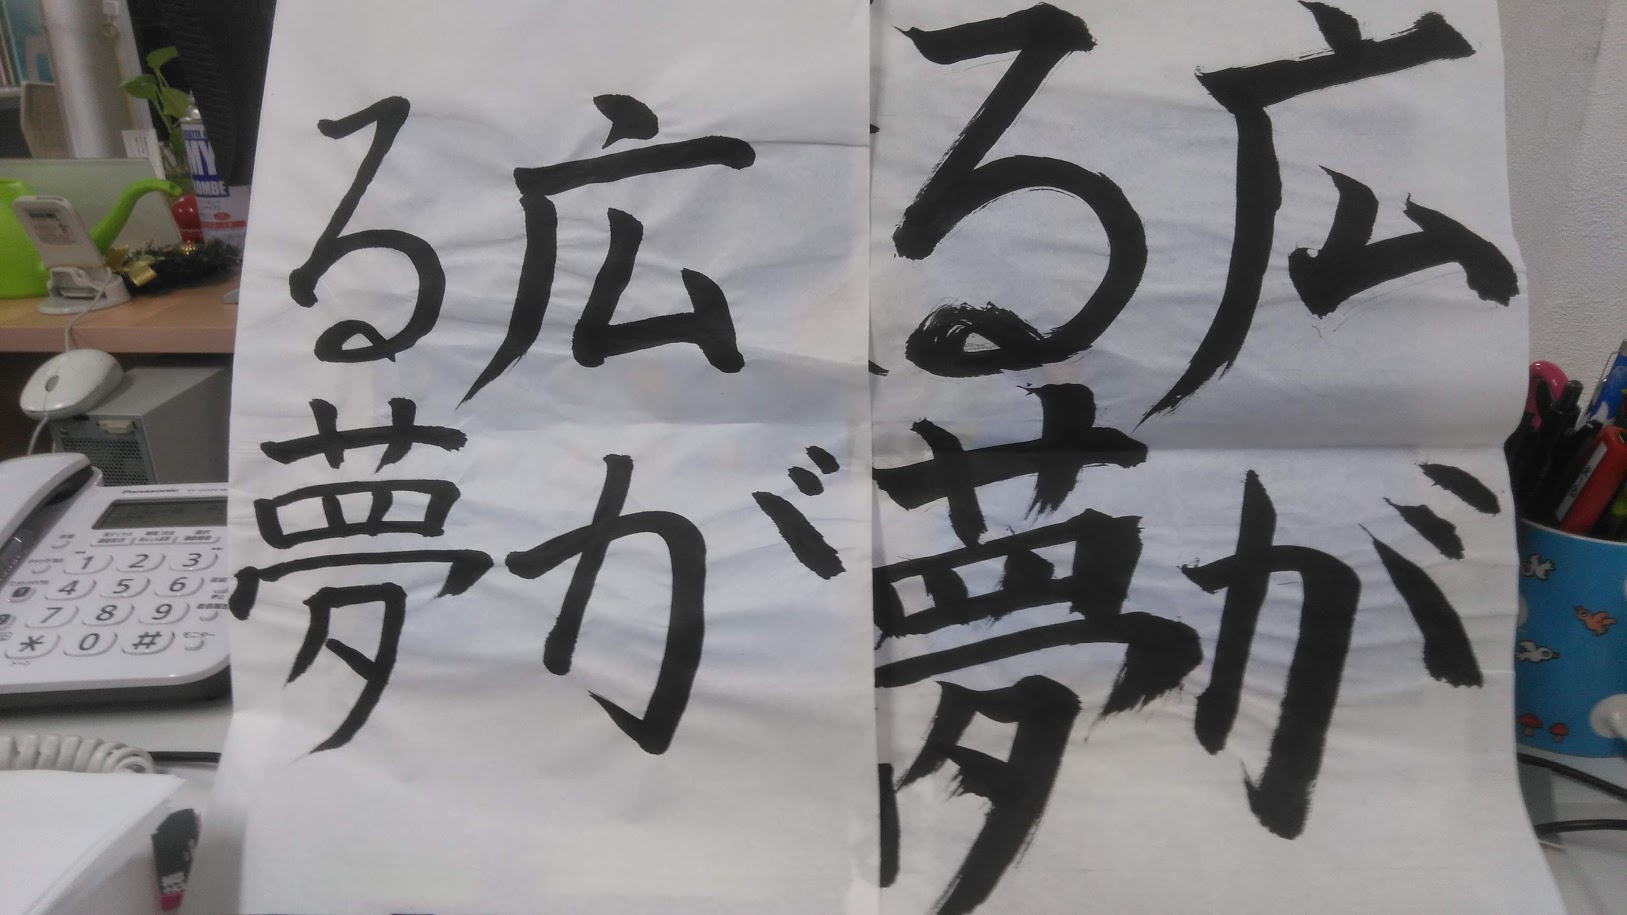 広が
る夢
広が
る夢
MY
BOMBE
Panasonic
1 2 3
4 5 6
7 8 9
* 0 #